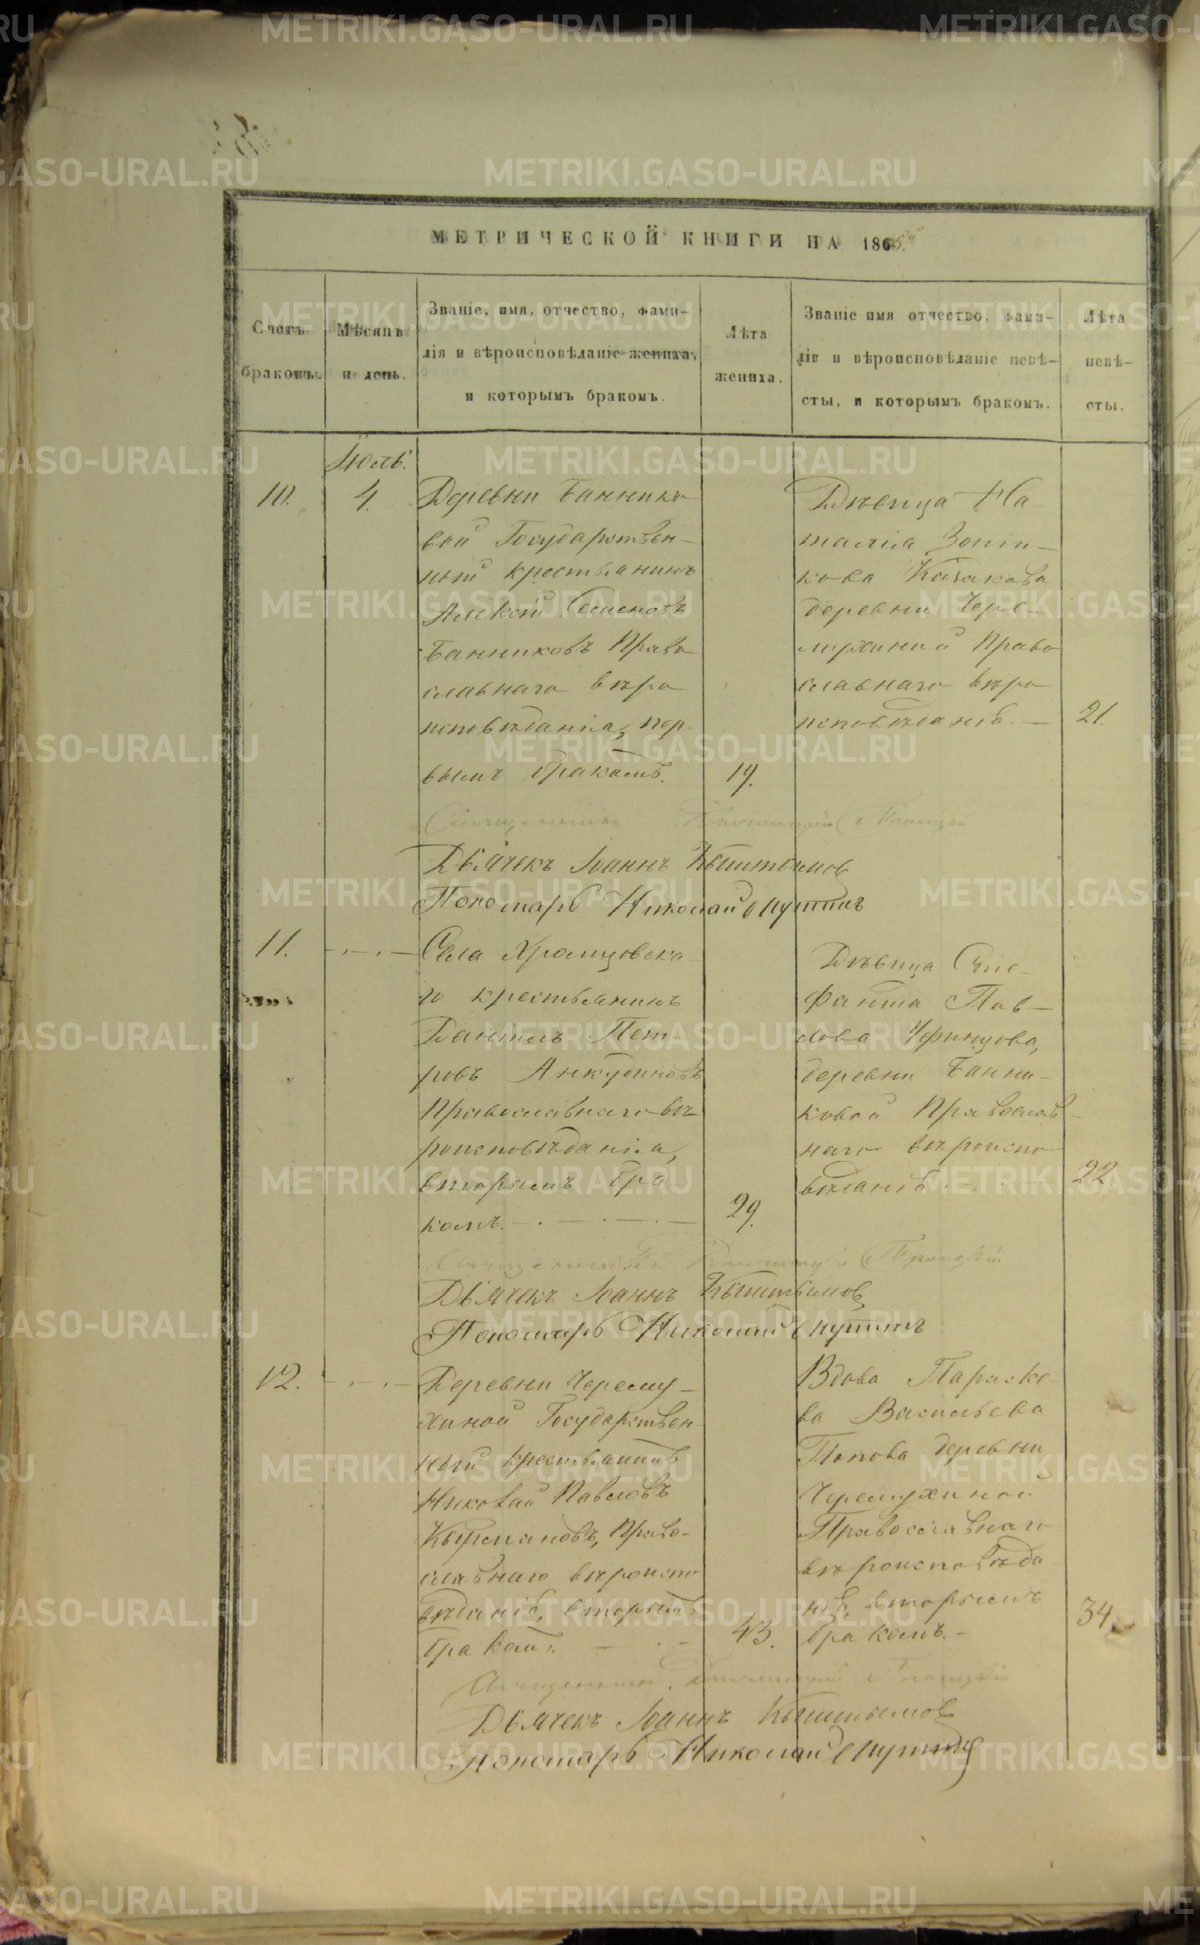 МЕТРИЧЕСКОЙ КНИГИ НА 186
Счетъ браковъ.
Мѣсяцъ и день.
Званіе, имя, отчество, фами-
лія и вѣроисповѣданіе жениха,
и которымъ бракомъ.
Лѣта
жениха.
Званіе имя отчество, фами-
лія и вѣроисповѣданіе невѣ-
сты, и которымъ бракомъ.
Лѣта
невѣ-
сты.
Іюль.
10.
4.
Деревни Баннико
вой Государствен-
ный крестьянинъ
Алексѣй Семеновъ
Банниковъ Право
славнаго вѣро
исповѣданія, пер-
вымъ бракомъ.
19.
Дѣвица На
талія
кова Казакова
деревни Чере-
мухиной Право
славнаго вѣро
исповѣданія.
21.
Священникъ Троицкій
Дьячекъ Іоаннъ Кыштымовъ
Пономарь Николай
11.
Села Храмцовска
го крестьянинъ
Даніилъ Пет
ровъ Анкудиновъ
Православнаго вѣ
роисповѣданія,
вторымъ бра
комъ.
29.
Дѣвица Сте-
фанида Пав-
лова
деревни Банни-
ковой Православ-
наго вѣроиспо
вѣданія
22
Священникъ Троицкій
Дьячекъ Іоаннъ Кыштымовъ
Пономарь Николай
12.
Деревни Черему-
хиной Государствен-
ный крестьянинъ
Николай Павловъ
Право-
славнаго вѣроиспо
вѣданія, вторымъ
бракомъ.
43.
Вдова Параске-
ва Васильева
Попова деревни
Черемухиной
Православнаго
вѣроисповѣда
нія, вторымъ
бракомъ.
34.
Священникъ Троицкій
Дьячекъ Іоаннъ Кыштымовъ
Пономарь Николай
METRIKI.GASO-URAL.RU